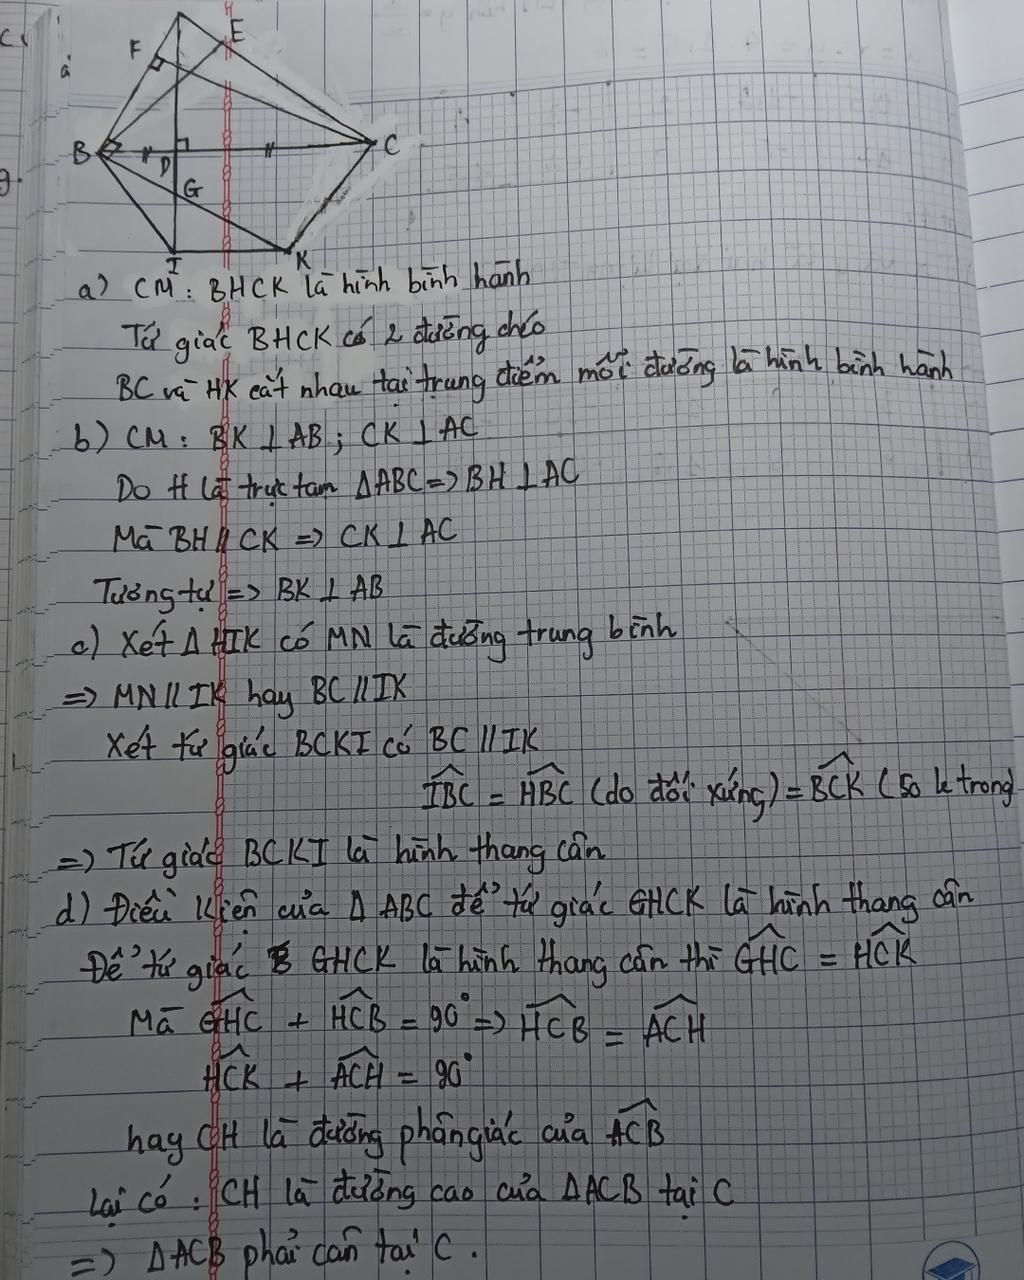 F
E
B
D
C
G
I
K
a) CM: BHCK là hình bình hành
Tứ giác BHCK có 2 đường chéo
BC và HK cắt nhau tại trung điểm mỗi đường là hình bình hành
b) CM: BK ⊥ AB; CK ⊥ AC
Do H là trực tam ΔABC => BH ⊥ AC
Mà BH // CK => CK ⊥ AC
Tương tự => BK ⊥ AB
c) Xét Δ HIK có MN là đường trung bình
=> MN // IK hay BC // IK
Xét tứ giác BCKI có BC // IK
\widehat{IBC} = \widehat{HBC} (do đối xứng) = \widehat{BCK} (so le trong
=> Tứ giác BCKI là hình thang cân
d) Điều kiện của Δ ABC để tứ giác GHCK là hình thang cân
Để tứ giác GHCK là hình thang cân thì \widehat{GHC} = \widehat{HCK}
Mà \widehat{GHC} + \widehat{HCB} = 90° => \widehat{HCB} = \widehat{ACH}
\widehat{HCK} + \widehat{ACH} = 90°
hay CH là đường phân giác của \widehat{ACB}
Lại có: CH là đường cao của ΔACB tại C
=> ΔACB phải cân tại C.